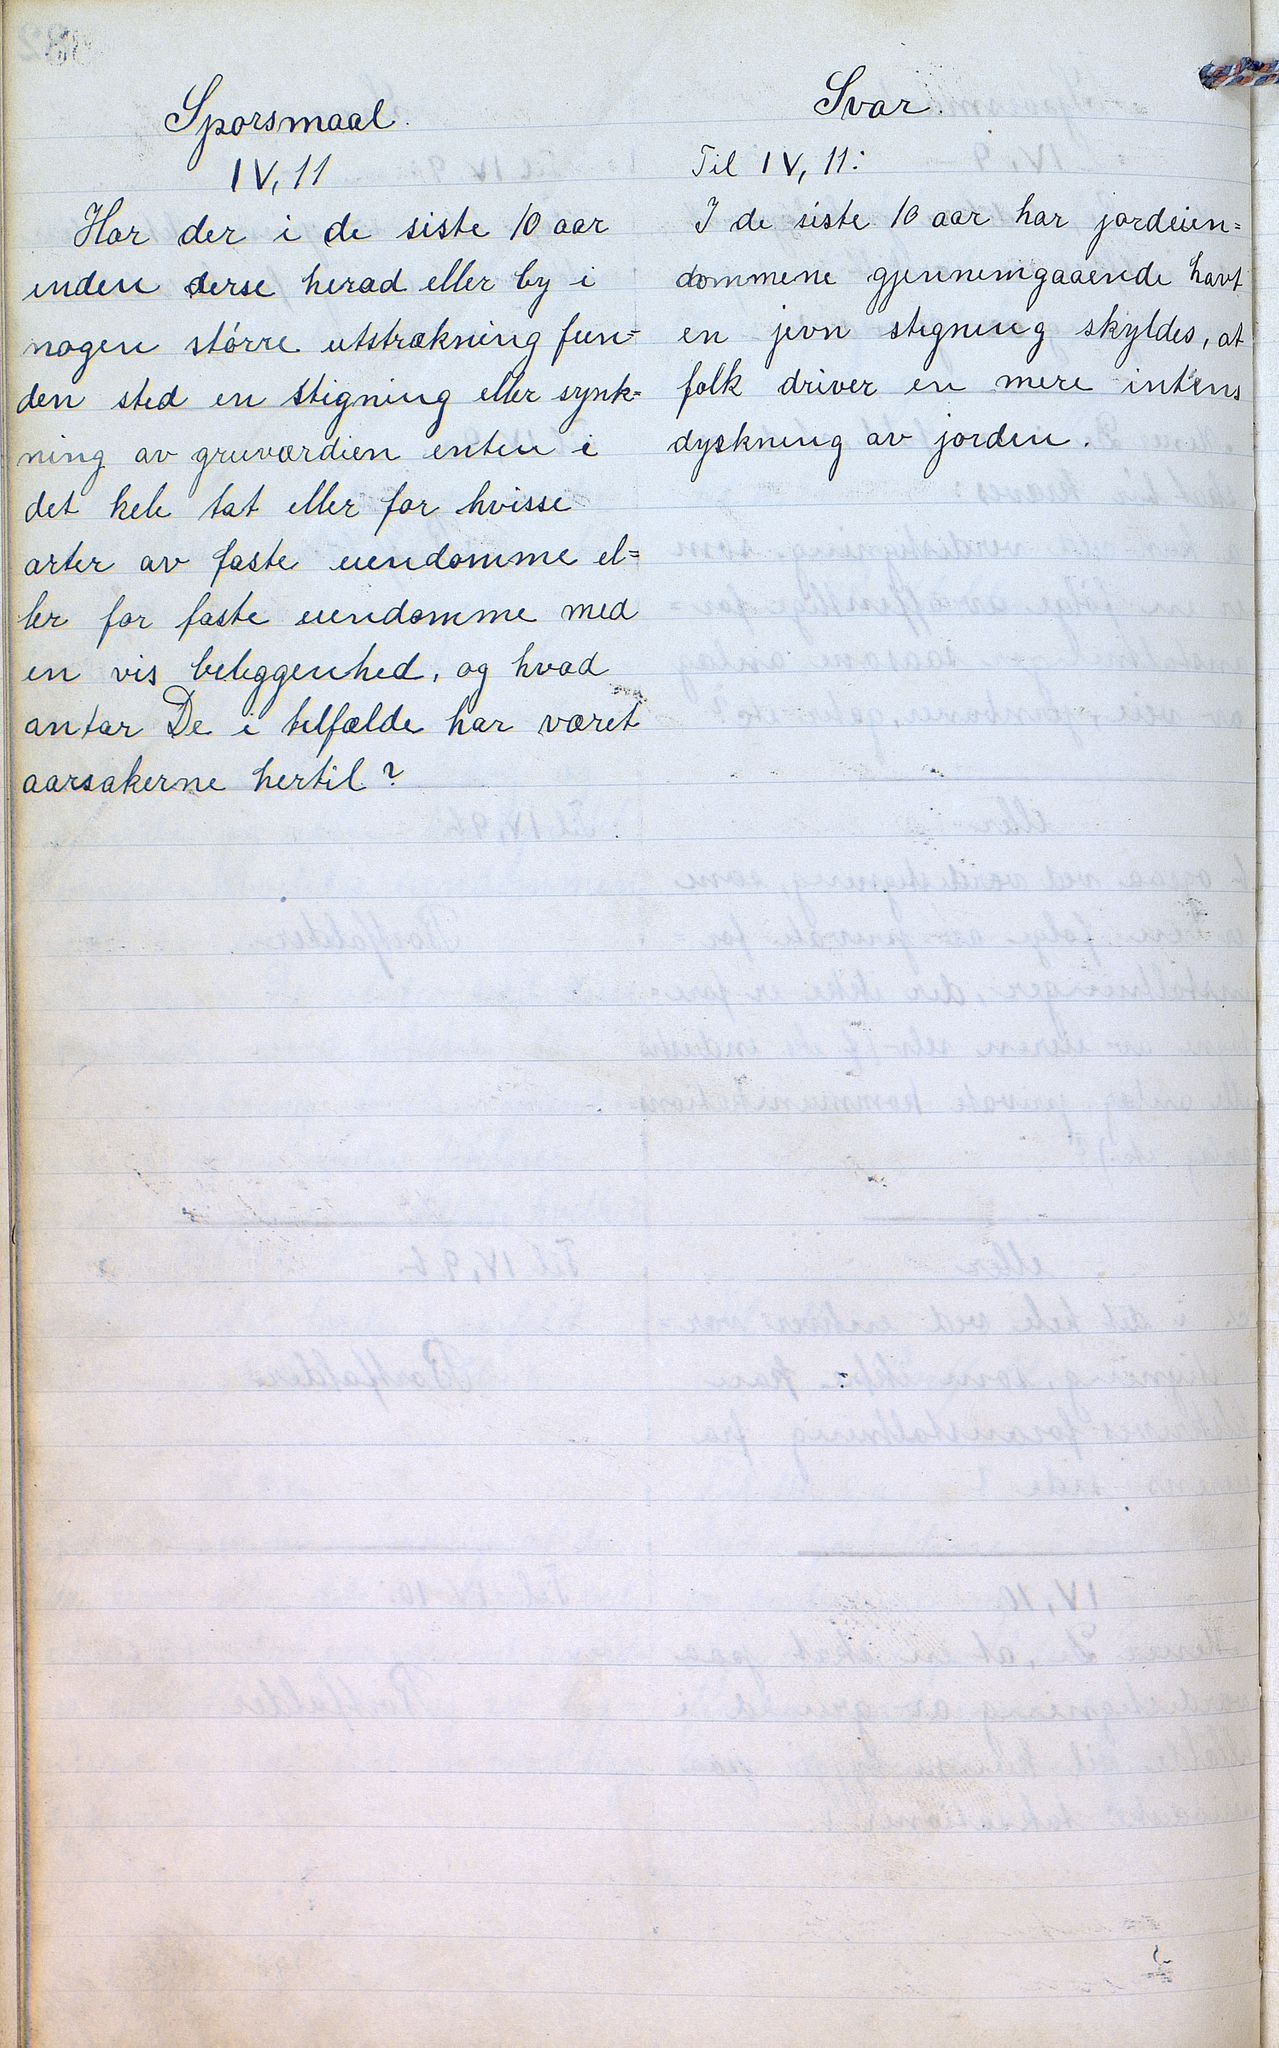 Sporsmaal.
IV, 11
Har der i de siste 10 aar
inden derse herad eller by i
nogen større utstrækning fun=
den sted en stigning eller synk=
ning av gruværdien enten i
det hele tat eller for hvisse
arter av faste eiendomme el=
ler for faste eiendomme med
en vis beleggenhed, og hvad
antar De i telfælde har været
aarsakerne hertil?
Svar.
Til IV, 11:
I de siste 10 aar har jordeien=
dommene gjennemgaaende havt
en jevn stegning skyldes, at
folk driver en mere intens
dyskning av jorden.